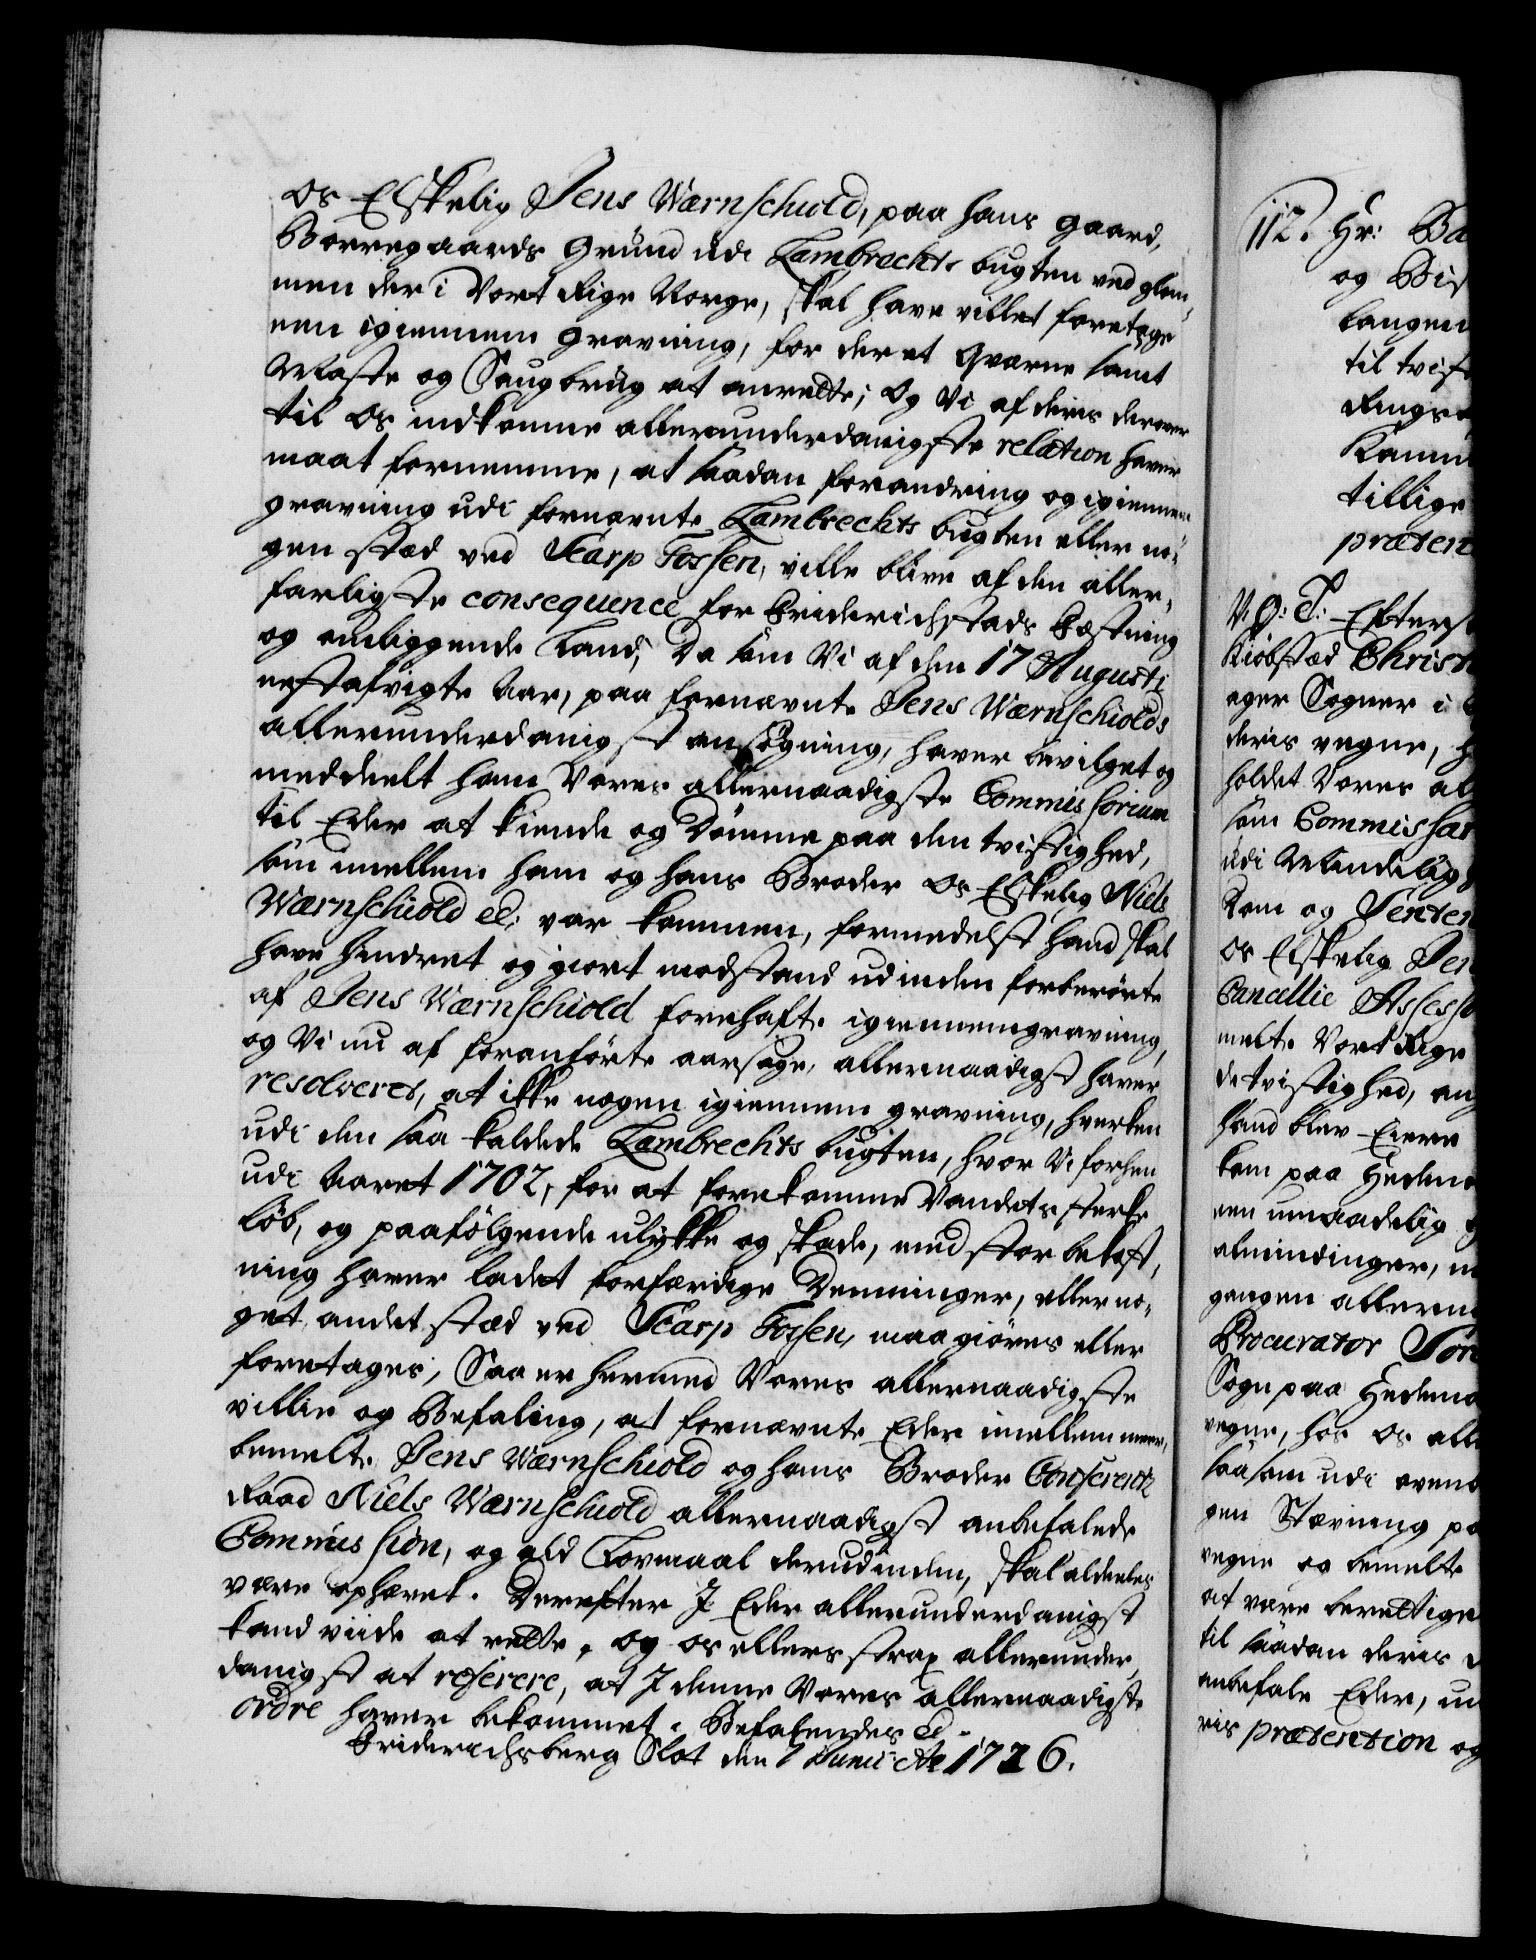 os Elskelig Jens Wærnschiold, paa hans gaard,
Borregaards Grund udi Lambrechts bugten ved glem-
men der i Vort Rige Norge, skal have villet foretage
een igiennem gravning, for der et Qværne samt
Maste og Saugbrug at anrette; Og Vi af deris derover
til Os indkomne allerunderdanigste relation haver
maat fornemme, at saadan forandring og igiennem-
gravning udi fornævnte Lambrechts bugten eller no-
gen stæd ved Sarp Fossen, ville blive af den aller-
farligste consequence for Friderichstads Fæstning
og omliggende Land; Da som Vi af den 17 Augusti
nestafvigte Aar, paa fornævnte Jens Wærnschiolds
allerunderdanigst ansøgning, haver bevilget og
meddeelt ham Vores allernaadigste Commissorium
til Eder at kiende og Dømme paa den tvistighed,
som imellem ham og hans Broder Os Elskelig Niels
Wærnschiold etc. var kommen, formedelst hand skal
have hindret og giort modstand udinden forberørte
af Jens Wærnschiold forehafte igiennemgravning,
og Vi nu af foranførte aarsage, allernaadigst haver
resolveret, at ikke nogen igiennem gravning, hverken
udi den saa kaldede Lambrechts bugten, hvor Vi forhen
udi Aaret 1702, for at forekomme Vandets sterke
løb, og paafølgende ulykke og skade, med stor bekost-
ning haver ladet forfærdige Demninger, eller no-
get andet stæd ved Sarp Fossen, maa giøres eller
foretages; Saa er hermed Vores allernaadigste
villie og Befaling, at fornævnte Eder imellem meer-
bemelte Jens Wærnschiold og hans Broder Conferentz
Raad Niels Wærnschiold allernaadigst anbefalede
Commission, og ald Lovmaal derudinden, skal aldeeles
være ophævet. Derefter I Eder allerunderdanigst
kand viide at rette, og os ellers strax allerunder-
danigst at referere, at I denne Vores allernaadigste
ordre haver bekommet. Befalendes etc.
Friderichsberg Slot den 7 Junii Ao 1726.
112. Hr: Ba
og Bis
langen
til tvist
Rings
tillige
præten
V. G: T: Efters
Kiøbstæd Christ
ager Sogner i
deris vegne, h
holdet Vores al
som Commissar
udi Mindelig
kom og Senten
os Elskelig Jen
Cancellie Assess
melte Vort Rige
de tvistighed, an
hand blev Eiere
kom paa Hedem
een umaadelig
almindinger, m
gangen allerun
Procurator Sør
Sogn paa Hedema
vegne, hos Os alle
saasom udi oven
gen Stævning pa
vegne og bemelte
at være berettige
til saadan deris
anbefale Eder, u
ris prætention og